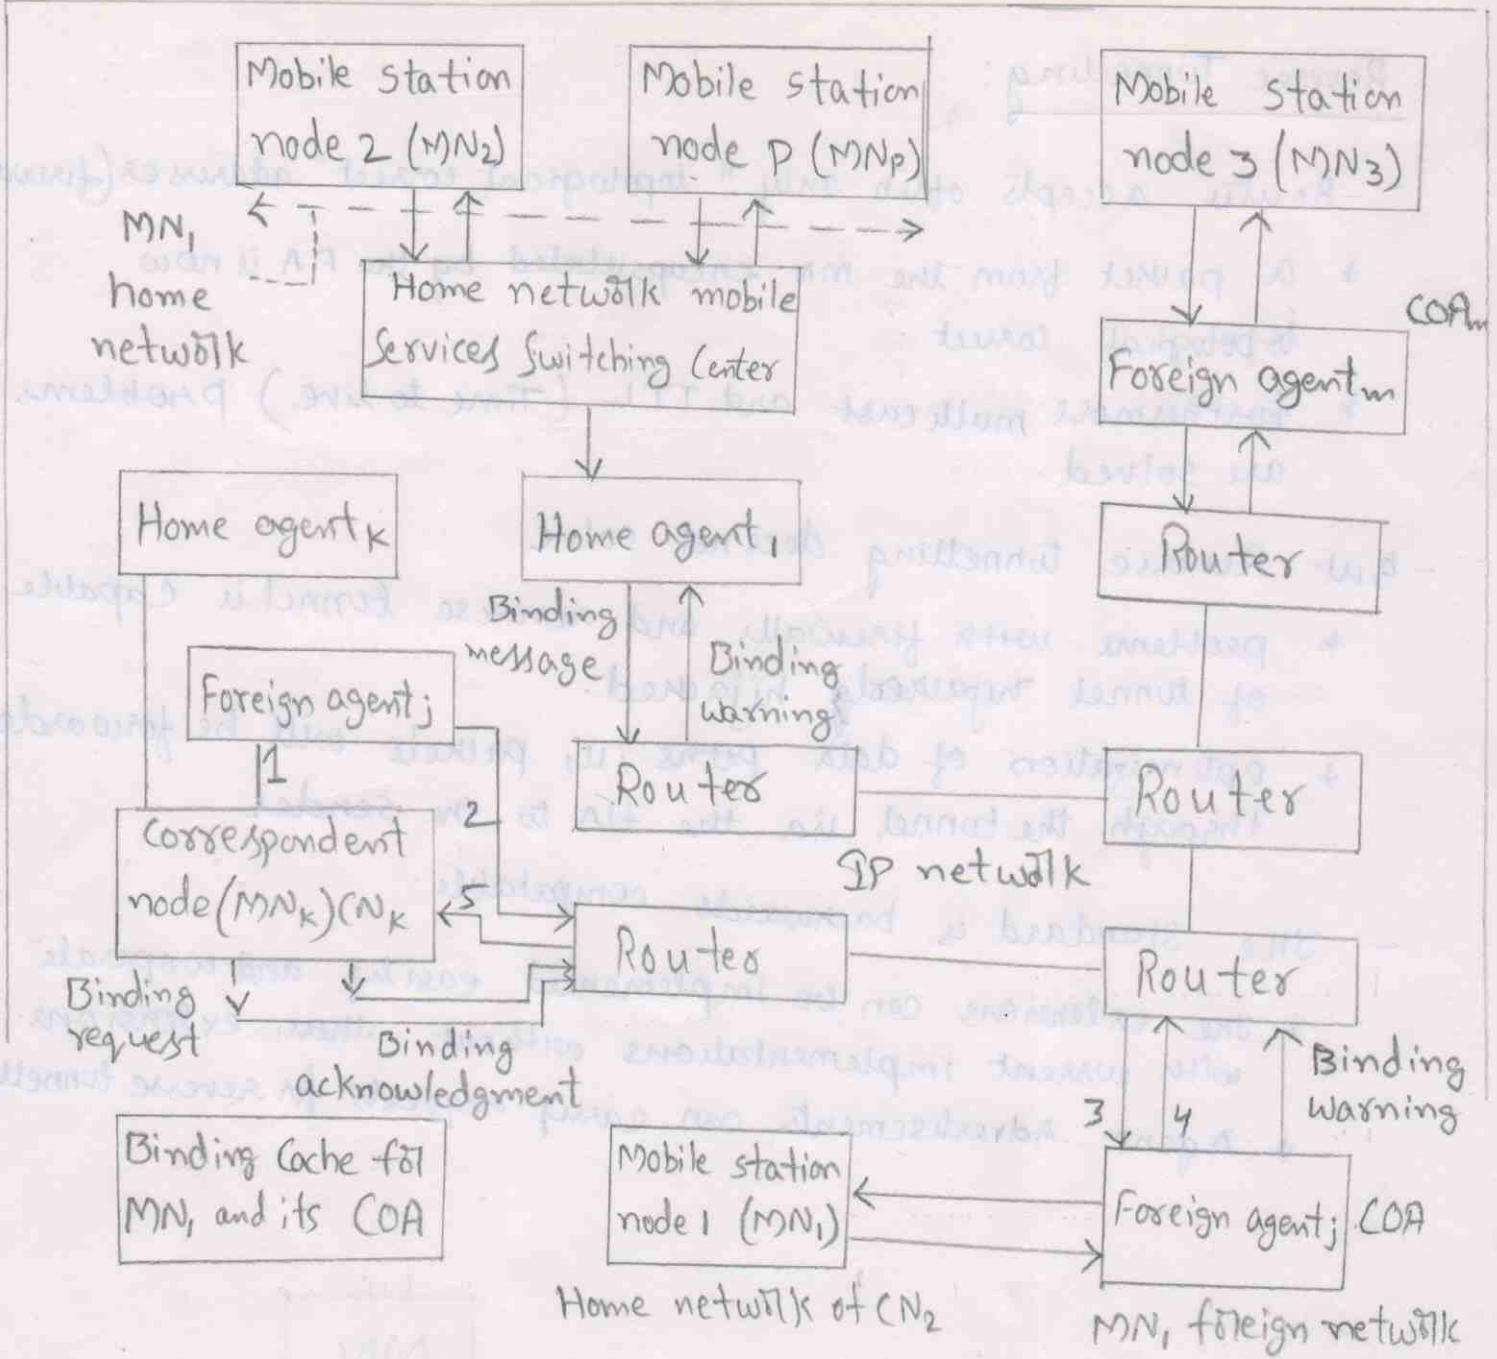 Mobile station
node 2 (MN2)
Mobile station
node P (MNP)
Mobile station
node 3 (MN3)
MN1
home
network
Home network mobile
Services Switching Center
COAm
Foreign agentm
Home agentk
Home agent1
Router
Binding
message
Binding
warning
Foreign agentj
1
Router
Router
2
Correspondent
node (MNk) CNk
IP network
5
Router
Router
Binding
request
Binding
acknowledgment
3
4
Binding
warning
Binding Cache for
MN1 and its COA
Mobile station
node 1 (MN1)
Foreign agentj
COA
Home network of CN2
MN1 foreign network